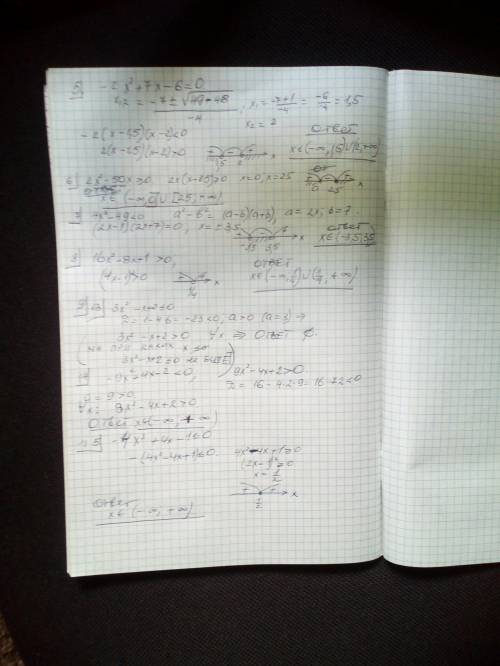 5) -2x²+7x-6=0
x₁,₂ = -7±√49-48 / -4 , x₁ = -7+1 / -4 = -6 / -4 = 1,5
x₂ = 2
-2(x-1,5)(x-2)<0 ОТВЕТ
2(x-1,5)(x-2)>0 + - + 1,5 2 x x∈(-∞,1,5)∪(2,+∞)
6) 2x²-50x≥0 2x(x-25)≥0 x=0, x=25 + - + 0 25 x
x∈(-∞,0]∪[25,+∞)
7) 4x²-49<0 a²-b²=(a-b)(a+b), a=2x; b=7.
(2x-7)(2x+7)=0, x=±3,5 -3,5 3,5 x ОТВЕТ x∈(-3,5;3,5)
8) 16x²-8x+1>0, ОТВЕТ
(4x-1)²>0 + + 1/4 x x∈(-∞,1/4)∪(1/4,+∞)
3x²-x+2≤0
D=1-4·6=-23<0, a>0 (a=3) ⇒
3x²-x+2>0 ∀x ⇒ ОТВЕТ ∅.
3x²-x+2≤0 не БУДЕТ)
-9x²+4x-2<0, 9x²-4x+2>0
D=16-4·2·9=16-72<0
a=9>0
∀x: 9x²-4x+2>0
ОТВЕТ x∈(-∞,+∞)
-4x²+4x-1≤0 4x²-4x+1≥0
-(4x²-4x+1)≤0 (2x-1)²≥0
x=1/2
+ + 1/2 x
ОТВЕТ
x∈(-∞,+∞)